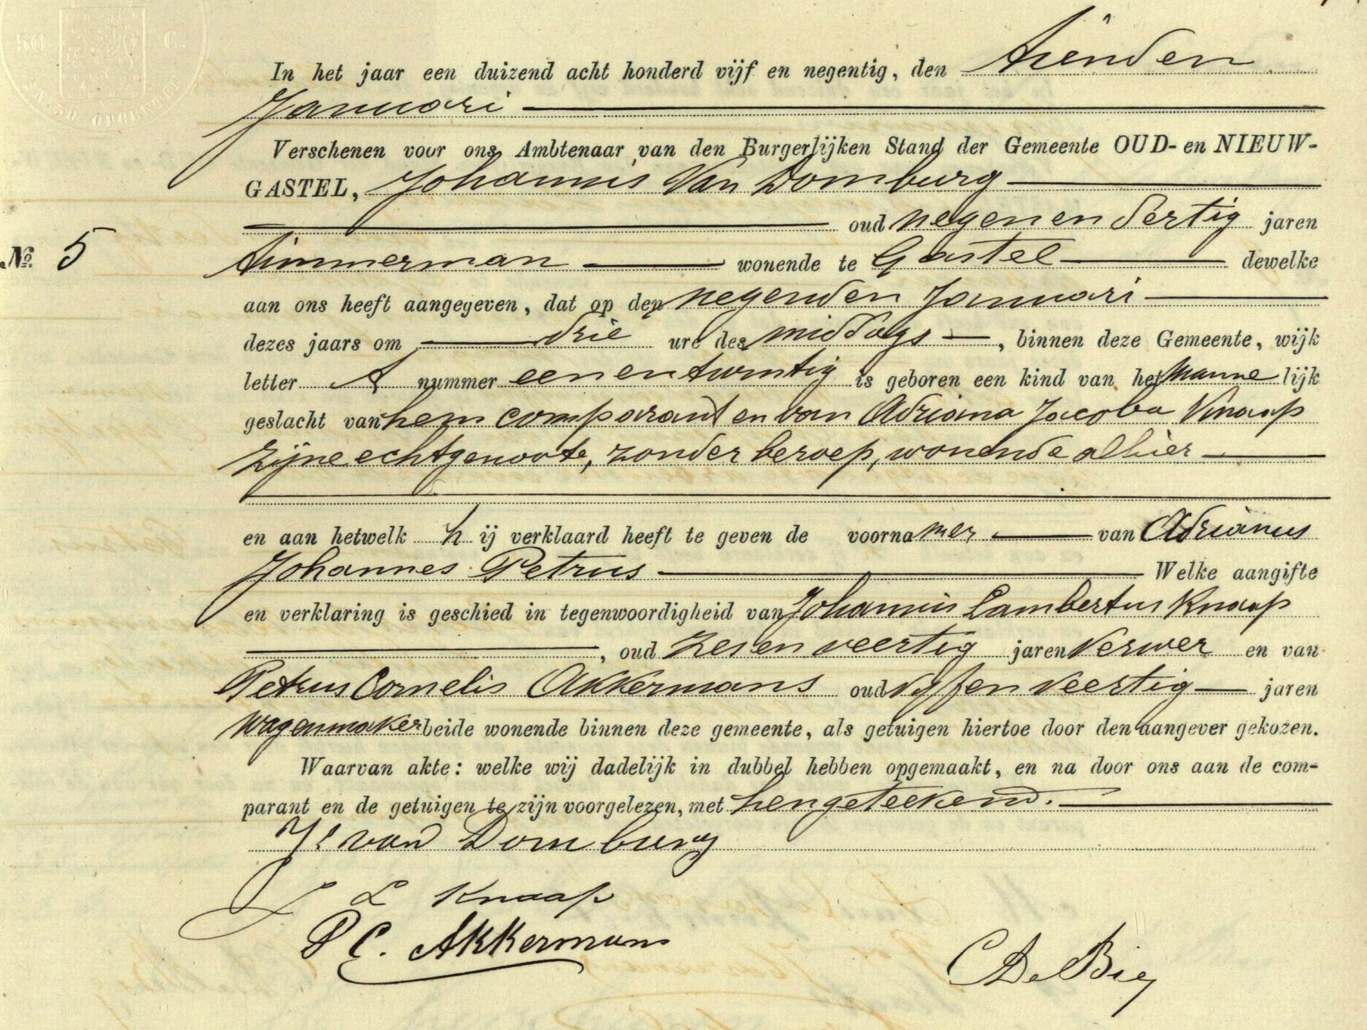 In het jaar een duizend acht honderd vijf en negentig, den tienden
Januari
Verschenen voor ons Ambtenaar van den Burgerlijken Stand der Gemeente OUD- en NIEUW-
GASTEL, Johannis Van Domburg
oud negen en dertig jaren
No. 5 timmerman wonende te Gastel dewelke
aan ons heeft aangegeven, dat op den negenden Januari
dezes jaars om drie ure des middags, binnen deze Gemeente, wijk
letter A nummer eenentwintig is geboren een kind van het mannelijk
geslacht van hem comparant en van Adriana Jacoba Knaap
zijne echtgenoote, zonder beroep, wonende alhier
en aan hetwelk hij verklaard heeft te geven de voornamen van Adrianus
Johannes Petrus Welke aangifte
en verklaring is geschied in tegenwoordigheid van Johannis Lambertus Knaap
, oud zes en veertig jaren Verwer en van
Petrus Cornelis Akkermans oud vijf en veertig jaren
wagenmaker beide wonende binnen deze gemeente, als getuigen hiertoe door den aangever gekozen.
Waarvan akte: welke wij dadelijk in dubbel hebben opgemaakt, en na door ons aan de com-
parant en de getuigen te zijn voorgelezen, met hen geteekend.
Js van Domburg
J L Knaap
P C. Akkermans
C De Bie